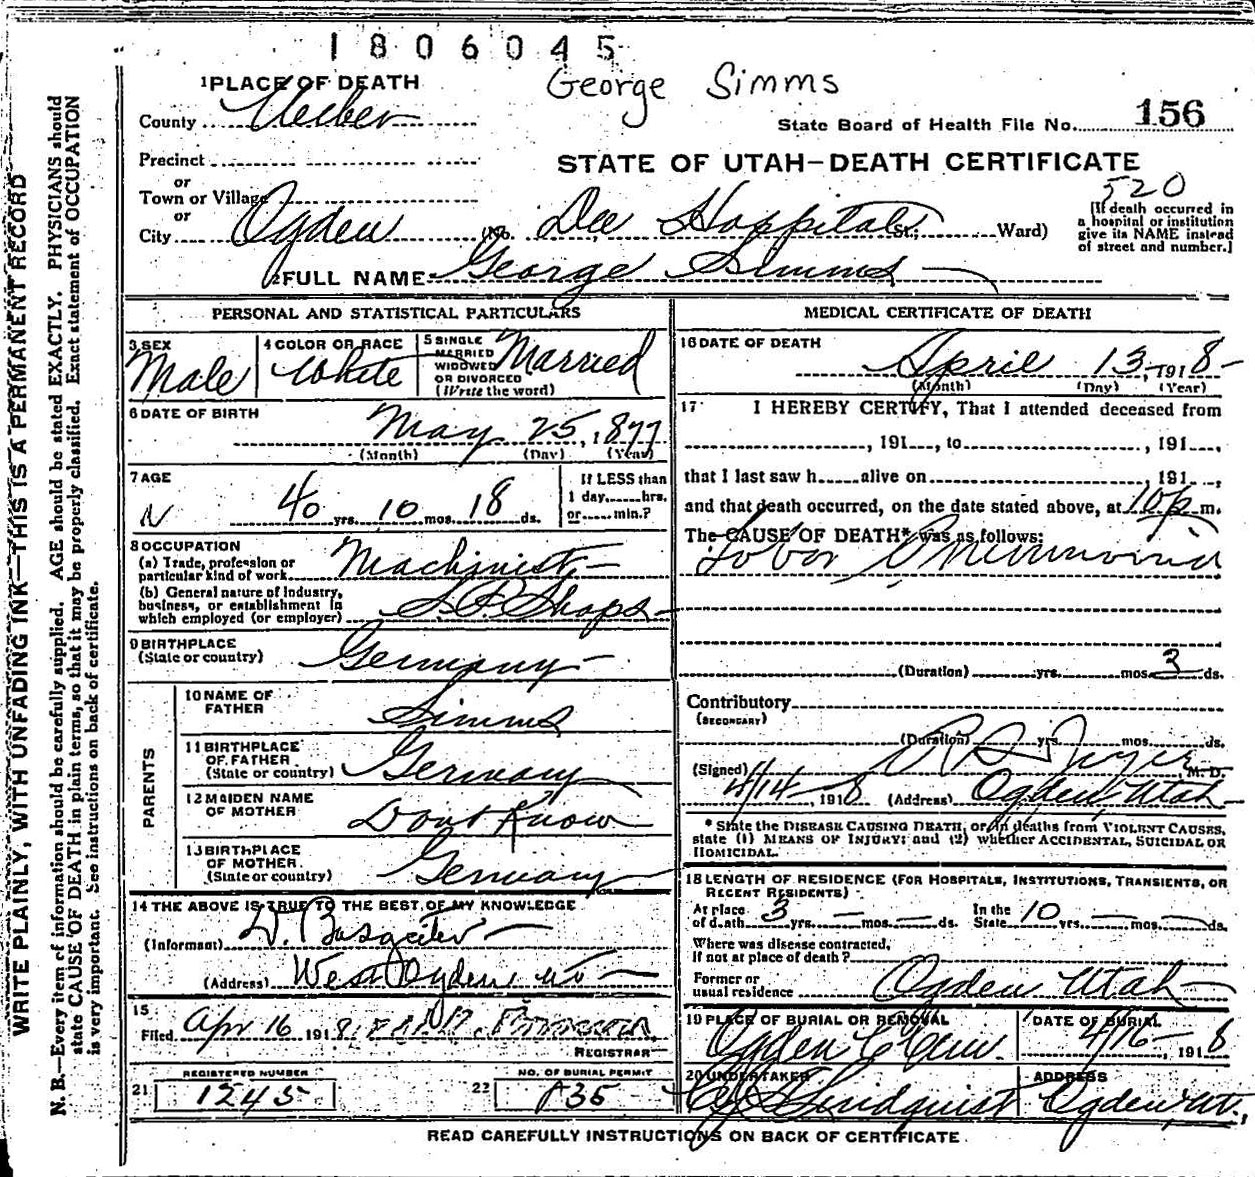 1806045
George Simms
1 PLACE OF DEATH
County Weber
State Board of Health File No. 156
Precinct
STATE OF UTAH—DEATH CERTIFICATE
or
Town or Village
or
520
City Ogden (No. Dee Hospital St.; Ward)
[If death occurred in
a hospital or institution
give its NAME instead
of street and number.]
2 FULL NAME George Simms
PERSONAL AND STATISTICAL PARTICULARS
3 SEX
Male
4 COLOR OR RACE
White
5 SINGLE
MARRIED
WIDOWED
OR DIVORCED
(Write the word)
Married
6 DATE OF BIRTH
May 25, 1877
(Month) (Day) (Year)
7 AGE
40 yrs. 10 mos. 18 ds.
If LESS than
1 day, hrs.
or min.?
8 OCCUPATION
(a) Trade, profession or
particular kind of work Machinist
(b) General nature of Industry,
business, or establishment in
which employed (or employer) S.P. Shops
9 BIRTHPLACE
(State or country) Germany
PARENTS
10 NAME OF
FATHER Simms
11 BIRTHPLACE
OF FATHER
(State or country) Germany
12 MAIDEN NAME
OF MOTHER Dont Know
13 BIRTHPLACE
OF MOTHER
(State or country) Germany
14 THE ABOVE IS TRUE TO THE BEST OF MY KNOWLEDGE
(Informant) W.
(Address) West Ogden
15
Filed Apr 16 1918
REGISTRAR
21 REGISTERED NUMBER
1245
22 NO. OF BURIAL PERMIT
MEDICAL CERTIFICATE OF DEATH
16 DATE OF DEATH
April 13, 1918
(Month) (Day) (Year)
17 I HEREBY CERTIFY, That I attended deceased from
, 191 , to , 191 ,
that I last saw h alive on , 191 ,
and that death occurred, on the date stated above, at 10 p m.
The CAUSE OF DEATH* was as follows:
Lobar Pneumonia
(Duration) yrs. mos. 3 ds.
Contributory
(SECONDARY)
(Duration) yrs. mos. ds.
(Signed) M. D.
4/14, 1918 (Address) Ogden, Utah
* State the DISEASE CAUSING DEATH, or in deaths from VIOLENT CAUSES,
state (1) MEANS OF INJURY; and (2) whether ACCIDENTAL, SUICIDAL OR
HOMICIDAL.
18 LENGTH OF RESIDENCE (FOR HOSPITALS, INSTITUTIONS, TRANSIENTS, OR
RECENT RESIDENTS)
At place
of death 3 yrs. — mos. — ds. In the
State 10 yrs. — mos. — ds.
Where was disease contracted,
If not at place of death?
Former or
usual residence Ogden Utah
19 PLACE OF BURIAL OR REMOVAL
Ogden C Cem.
DATE OF BURIAL
4/16, 1918
20 UNDERTAKER
Lindquist
ADDRESS
Ogden, Ut.
READ CAREFULLY INSTRUCTIONS ON BACK OF CERTIFICATE
WRITE PLAINLY, WITH UNFADING INK—THIS IS A PERMANENT RECORD
N. B.—Every item of information should be carefully supplied. AGE should be stated EXACTLY. PHYSICIANS should
state CAUSE OF DEATH in plain terms, so that it may be properly classified. Exact statement of OCCUPATION
is very important. See instructions on back of certificate.